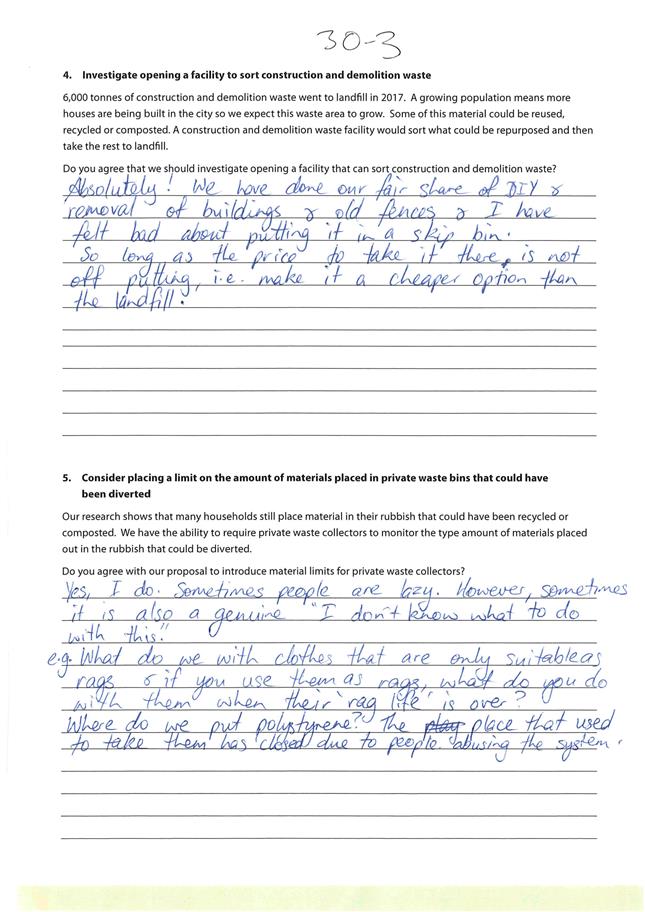 30-3
4. Investigate opening a facility to sort construction and demolition waste
6,000 tonnes of construction and demolition waste went to landfill in 2017. A growing population means more
houses are being built in the city so we expect this waste area to grow. Some of this material could be reused,
recycled or composted. A construction and demolition waste facility would sort what could be repurposed and then
take the rest to landfill.
Do you agree that we should investigate opening a facility that can sort construction and demolition waste?
Absolutely! We have done our fair share of DIY &
removal of buildings & old fences & I have
felt bad about putting it in a skip bin.
So long as the price to take it there, is not
off putting, i.e. make it a cheaper option than
the landfill.
5. Consider placing a limit on the amount of materials placed in private waste bins that could have
been diverted
Our research shows that many households still place material in their rubbish that could have been recycled or
composted. We have the ability to require private waste collectors to monitor the type amount of materials placed
out in the rubbish that could be diverted.
Do you agree with our proposal to introduce material limits for private waste collectors?
Yes, I do. Sometimes people are lazy. However, sometimes
it is also a genuine "I don't know what to do
with this."
e.g. What do we with clothes that are only suitable as
rags & if you use them as rags, what do you do
with them when their 'rag life' is over?
Where do we put polystyrene? The place that used
to take them has closed due to people abusing the system.